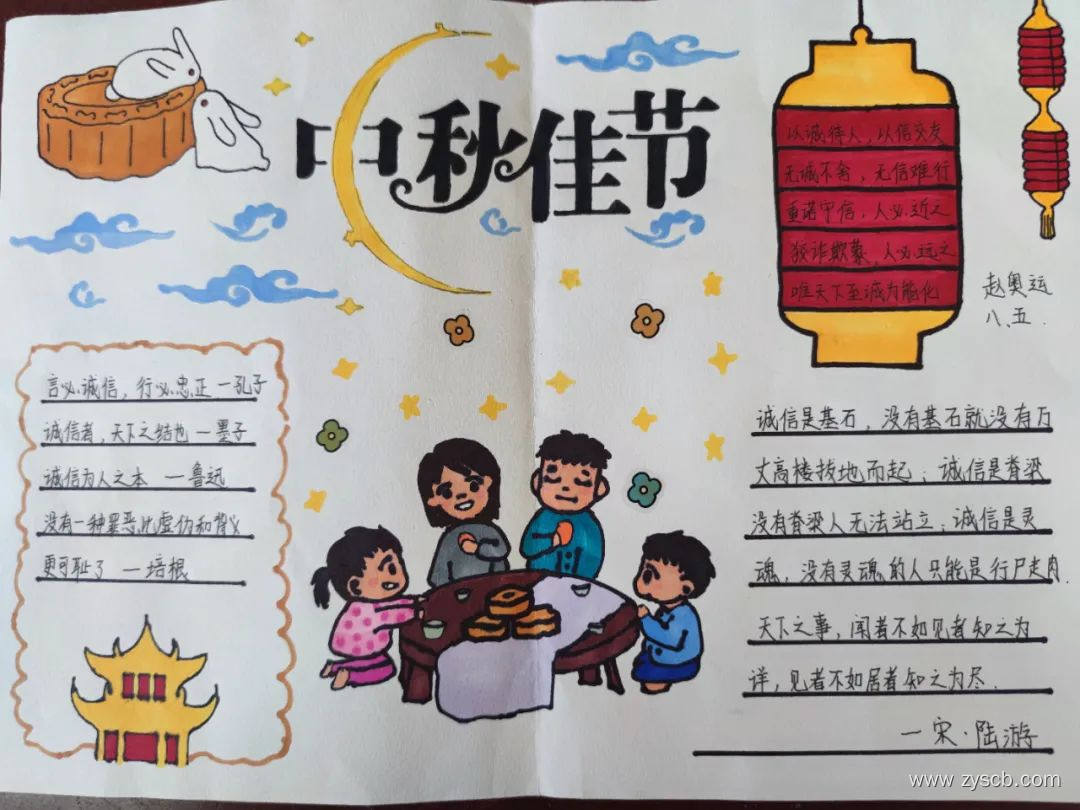 中秋佳节
以诚待人，以信交友
无诚不舍，无信难行
重诺守信，人必近之
狡诈欺蒙，人必远之
唯天下至诚为能化
赵奥运
八、五.
言必诚信，行必忠正 一孔子
诚信者，天下之结也 一墨子
诚信为人之本 一鲁迅
没有一种罪恶比虚伪和背义
更可耻了 一培根
诚信是基石，没有基石就没有万
丈高楼拔地而起；诚信是脊梁
没有脊梁人无法站立；诚信是灵
魂，没有灵魂的人只能是行尸走肉.
天下之事，闻者不如见者知之为
详，见者不如居者知之为尽.
一宋·陆游
www.zyscb.com